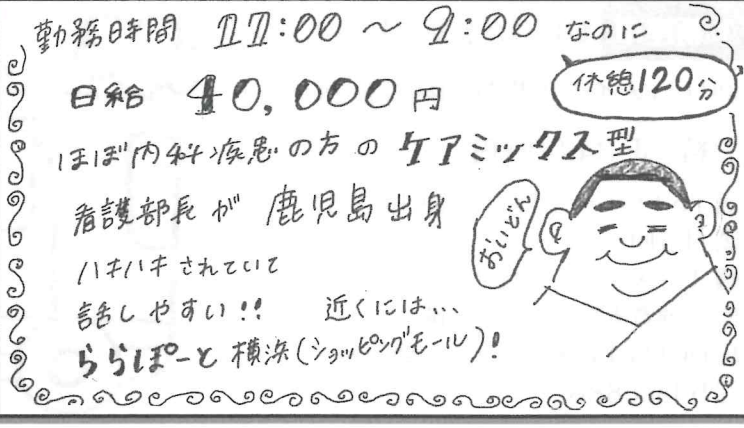 勤務時間 17:00 ～ 9:00 なのに
休憩120分
日給 40,000円
ほぼ内科疾患の方の ケアミックス型
看護部長が 鹿児島出身
おいどん
ハキハキされていて
話しやすい!! 近くには…
ららぽーと横浜(ショッピングモール)!